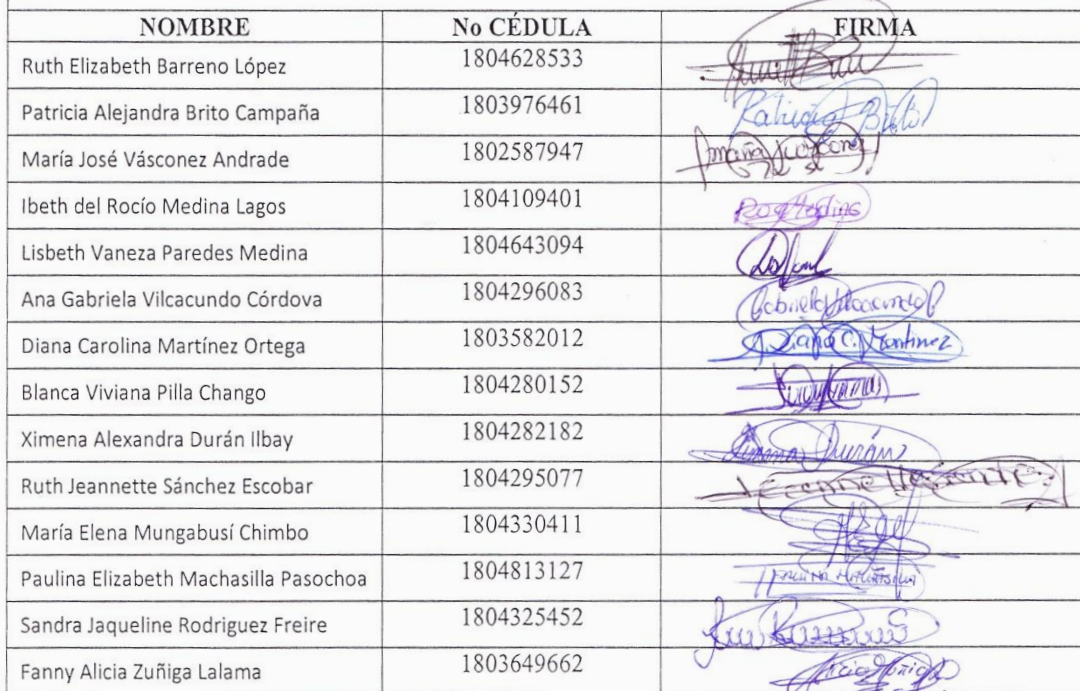 NOMBRE No CÉDULA FIRMA
Ruth Elizabeth Barreno López 1804628533
Patricia Alejandra Brito Campaña 1803976461 Patricia Brito
María José Vásconez Andrade 1802587947
Ibeth del Rocío Medina Lagos 1804109401
Lisbeth Vaneza Paredes Medina 1804643094
Ana Gabriela Vilcacundo Córdova 1804296083 Gabriela Vilcacundo
Diana Carolina Martínez Ortega 1803582012 Diana C. Martinez
Blanca Viviana Pilla Chango 1804280152
Ximena Alexandra Durán Ilbay 1804282182 Ximena Durán
Ruth Jeannette Sánchez Escobar 1804295077
María Elena Mungabusí Chimbo 1804330411
Paulina Elizabeth Machasilla Pasochoa 1804813127
Sandra Jaqueline Rodriguez Freire 1804325452
Fanny Alicia Zuñiga Lalama 1803649662